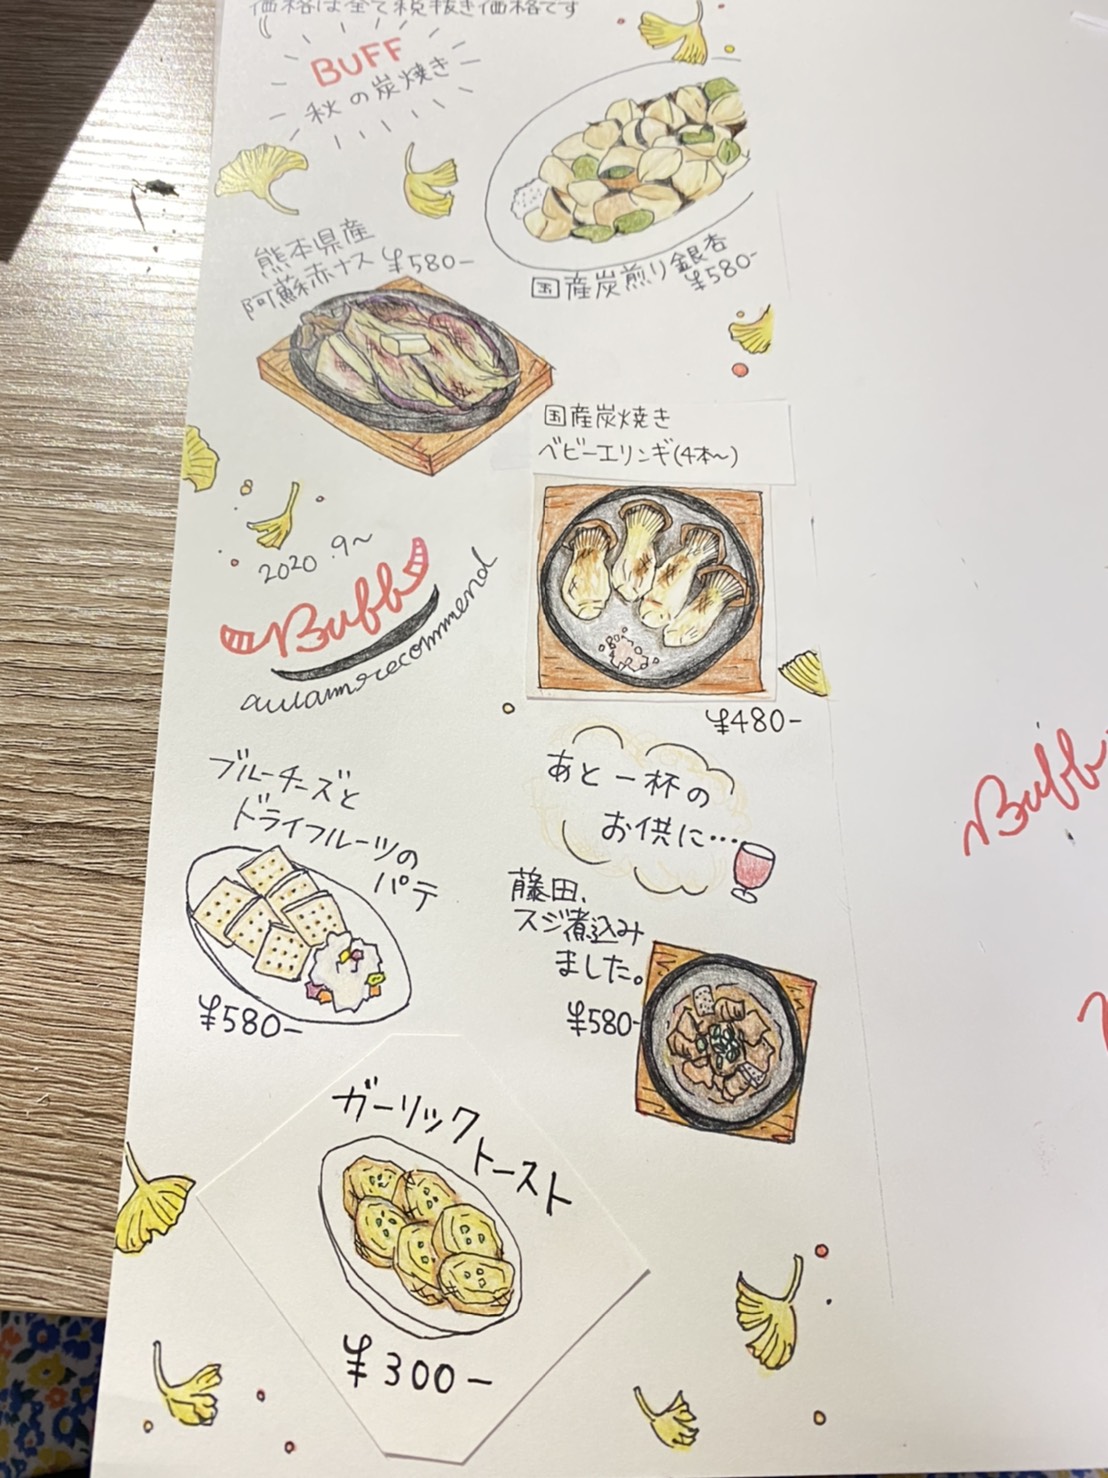 価格は全て税抜き価格です
BUFF
秋の炭焼き
熊本県産
阿蘇赤ナス ¥580-
国産炭煎り銀杏
¥580-
国産炭焼き
ベビーエリンギ(4本〜)
¥480-
2020.9〜
Buff
recommend
ブルーチーズと
ドライフルーツの
パテ
¥580-
あと一杯の
お供に…
藤田、
スジ煮込み
ました。
¥580-
ガーリック
トースト
¥300-
Buff